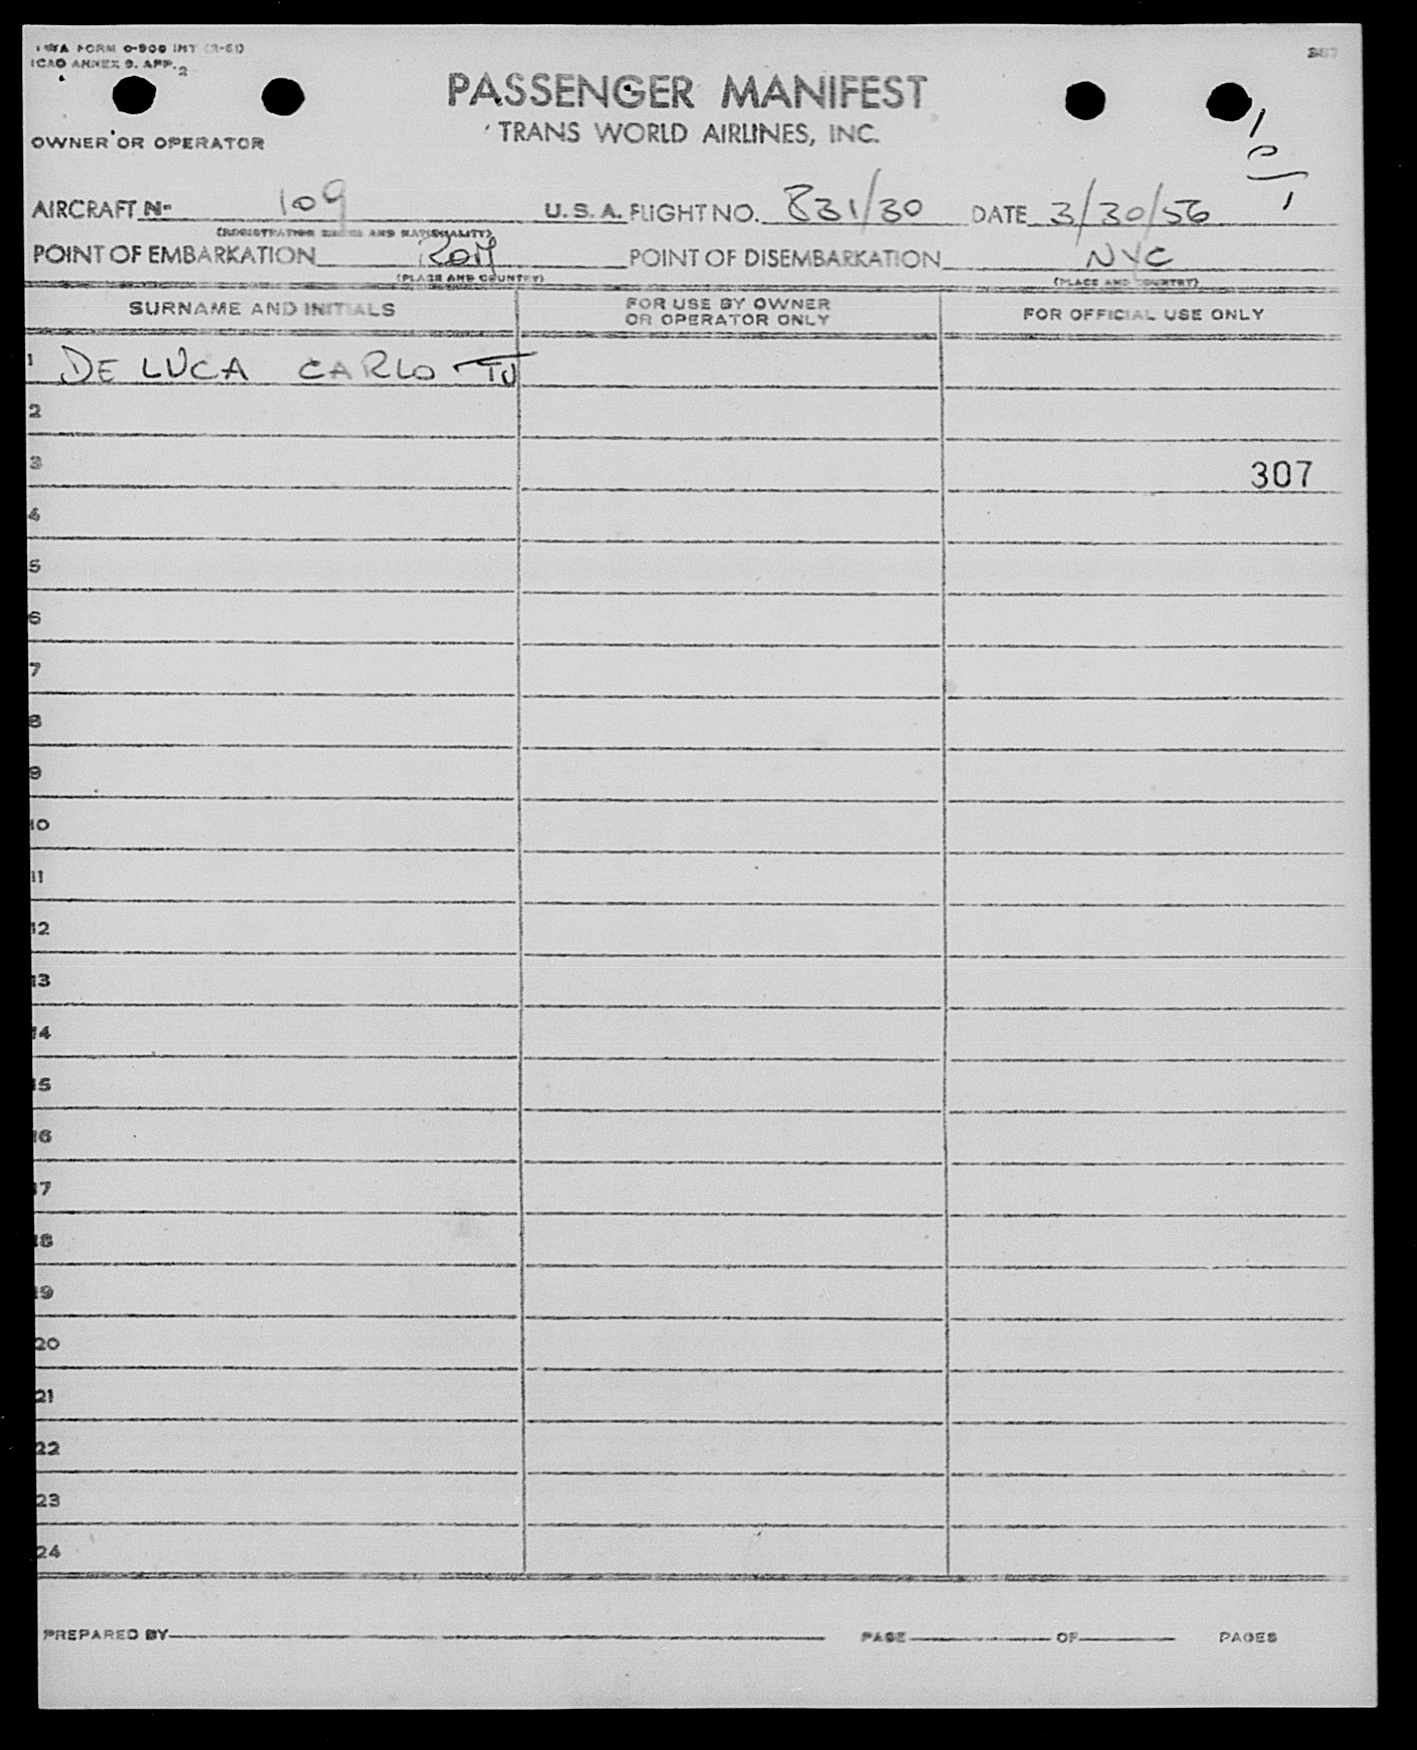 TWA FORM O-900 INT (3-51)
ICAO ANNEX 9. APP. 2
PASSENGER MANIFEST
TRANS WORLD AIRLINES, INC.
OWNER OR OPERATOR
1
0
1
AIRCRAFT N- 109 U. S. A. FLIGHT NO. 831/30 DATE 3/30/56
(REGISTRATION MARKS AND NATIONALITY)
POINT OF EMBARKATION ROM POINT OF DISEMBARKATION NYC
(PLACE AND COUNTRY) (PLACE AND COUNTRY)
SURNAME AND INITIALS FOR USE BY OWNER OR OPERATOR ONLY FOR OFFICIAL USE ONLY
1 DE LUCA CARLO TJ
2
3 307
4
5
6
7
8
9
10
11
12
13
14
15
16
17
18
19
20
21
22
23
24
PREPARED BY PAGE OF PAGES